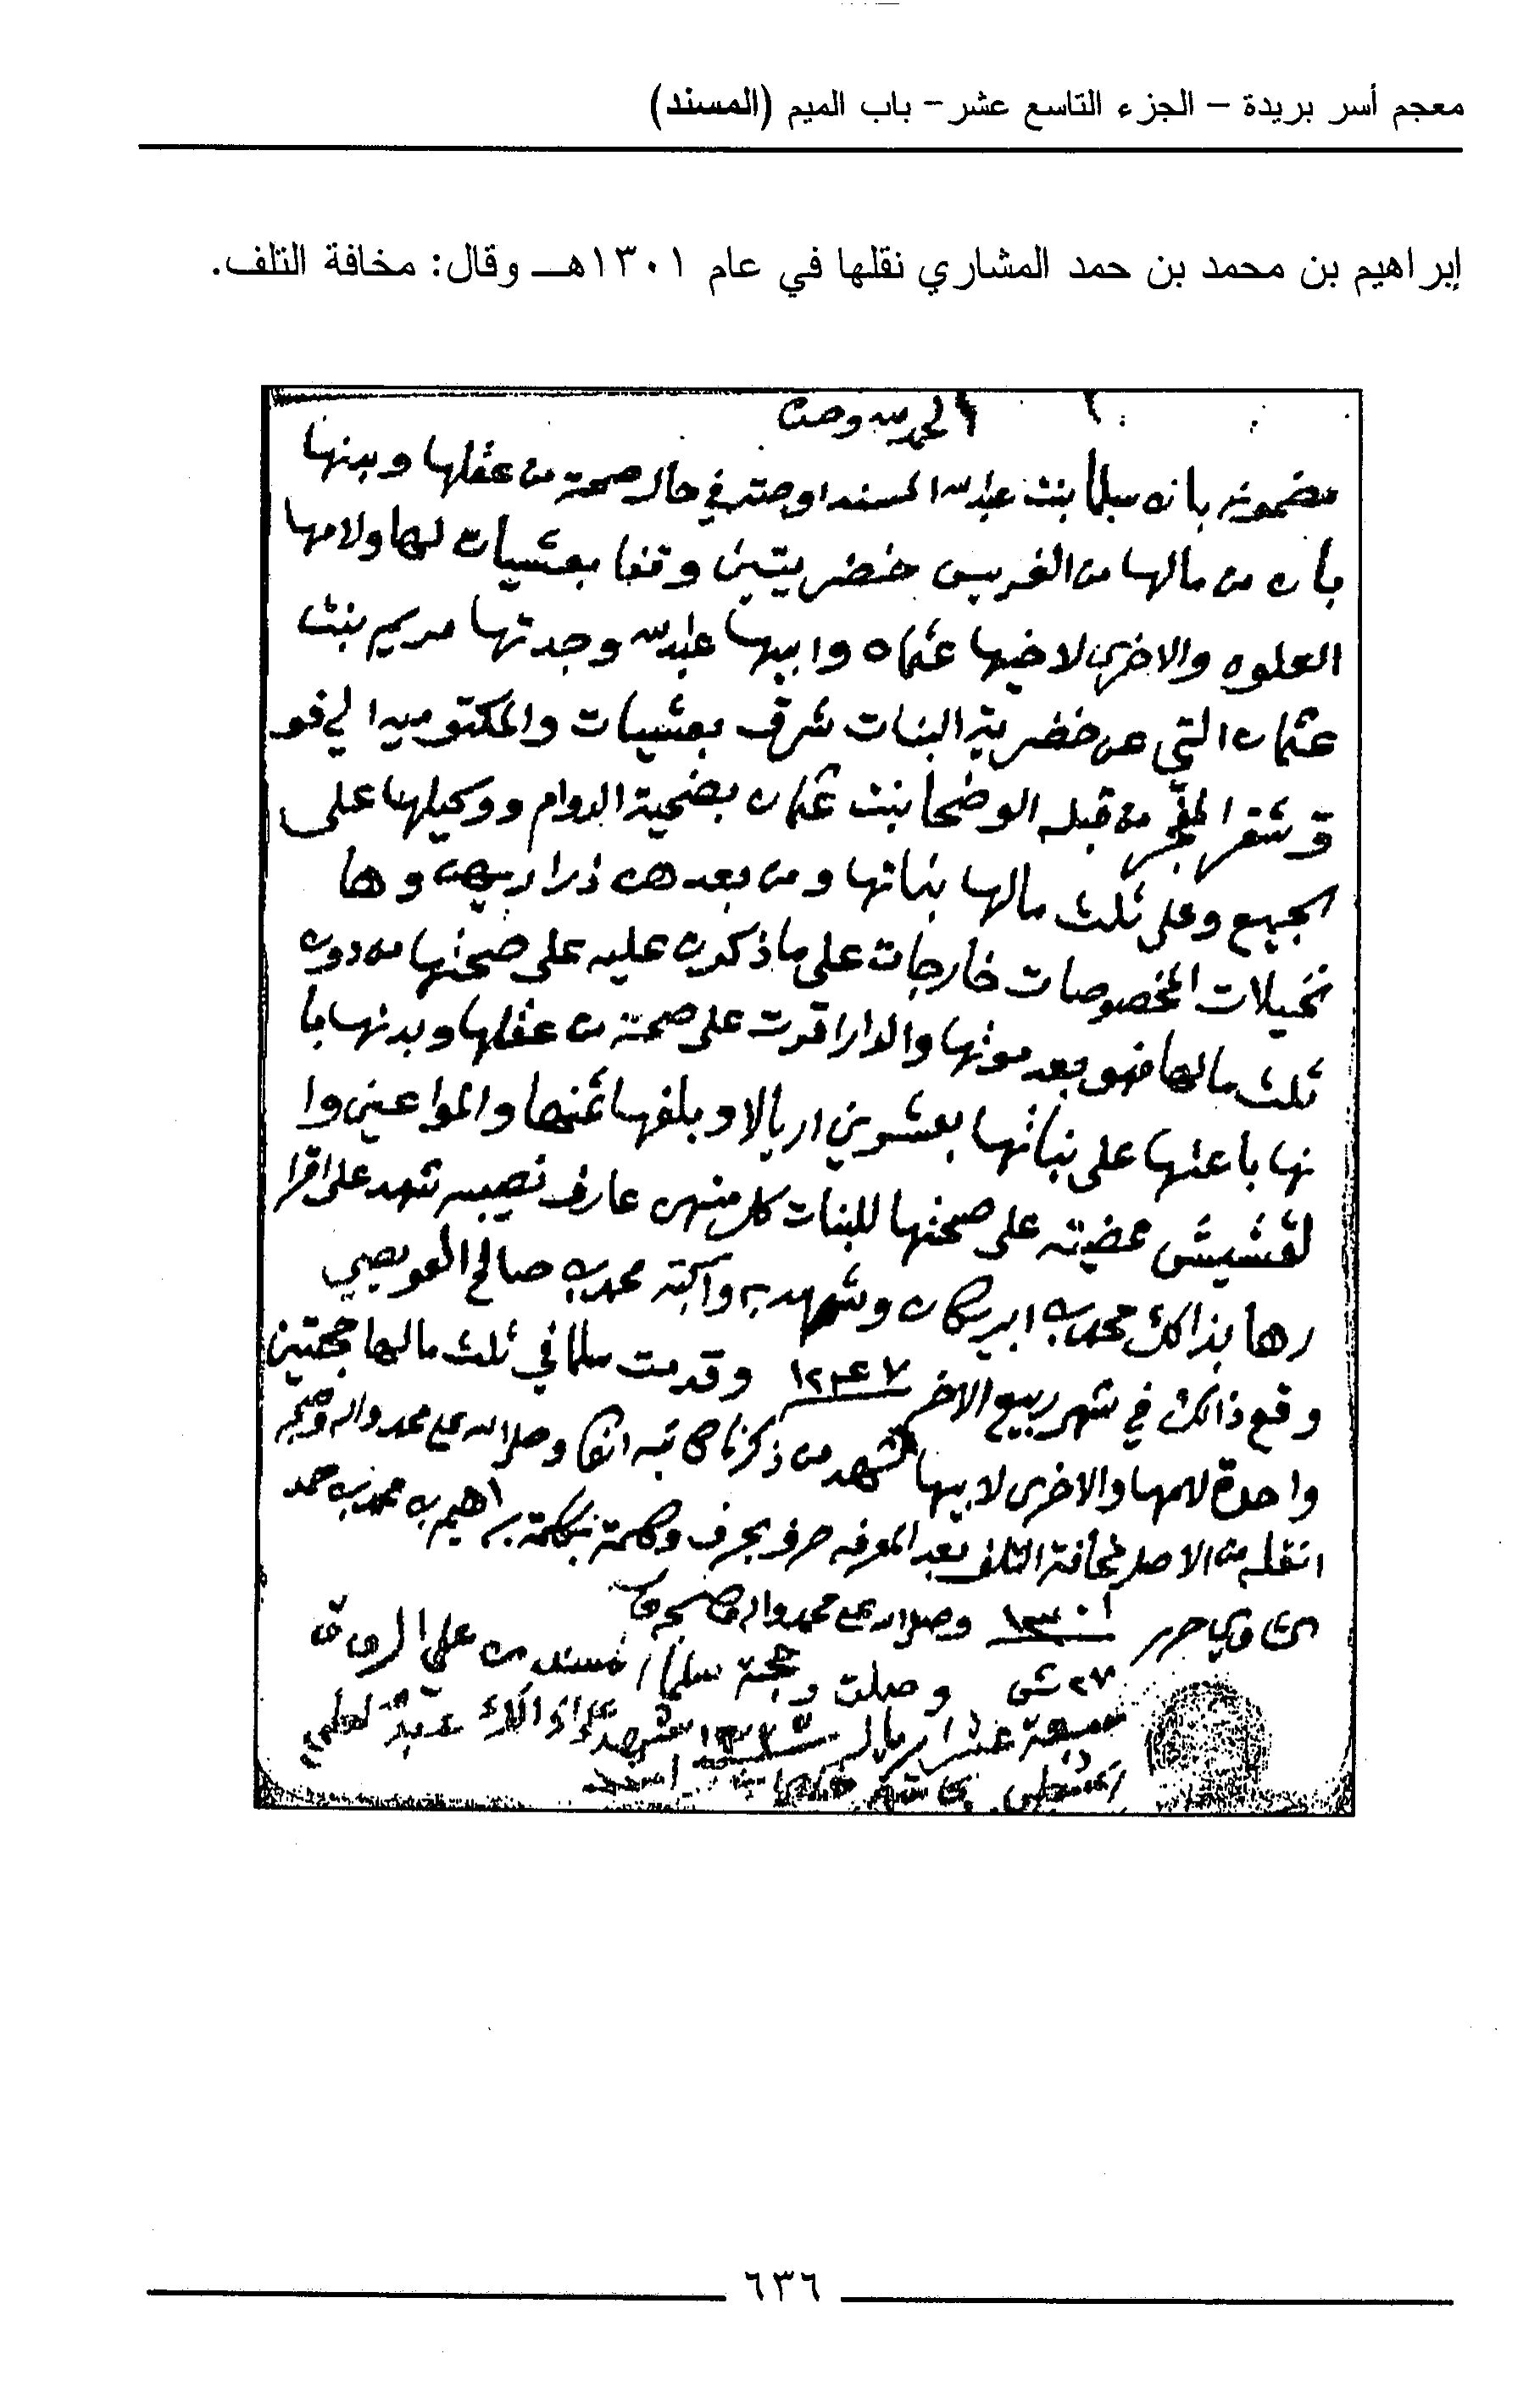 معجم أسر بريدة – الجزء التاسع عشر – باب الميم (المسند)
إبراهيم بن محمد بن حمد المشاري نقلها في عام ١٣٠١هـ وقال: مخافة التلف.
الحمد لله وحده
مضمونه بانه سلما بنت عبدالله المسند اوصت في حال صحة من عقلها وبدنها
بان من مالها من الغريس خضريتين وقفا بعشيات لها ولامها
العلوه والاخرى لاخيها عثمان وابيها عبدالله وجدتها مريم بنت
عثمان التي عن خضرية البنات شرق بعشيات والمكتوميه الي فو
ق وشقرا من قبله الوضحا بنت عثمان بضحية الدوام ووكيلها على
الجميع وعلى ثلث مالها بناتها ومن بعدهن ذراريهن وها
نخيلات المخصوصات خارجات على ما ذكرت عليه على صحتها من دون
ثلث مالها فهو بعد موتها والدار اقرت على صحة من عقلها وبدنها با
نها باعتها على بناتها بعشرين اريالا وبلغها ثمنها والمواعين وا
لقشيش عضيته على صحتها للبنات كل منهن عارف نصيبه شهد على اقرا
رها بذالك محمد بن ابريكان وشهد به واكتبه محمد بن صالح العويصي
وقع ذالك في شهر ربيع الاخر ١٢٤٧ وقدمت سلما في ثلث مالها حجتين
واحدة لامها والاخرى لابيها شهد من ذكرنا كاتبه انفا وصلى الله على محمد واله وصحبه
انقله من الاصل مخافة التلف بعد المعرفه حرف بحرف وكلمة بكلمة براهيم بن محمد بن حمد
حرر ١٣٠١ وصلى الله على محمد واله وصحبه
٢٧ وصلت وحجة سلما المسند من علي
سبعة عشر اريال شهد على ذالك
٦٣٦